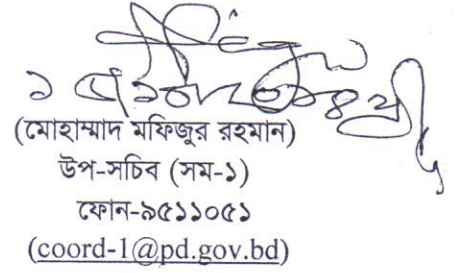 (মোহাম্মাদ মফিজুর রহমান)
উপ-সচিব (সম-১)
ফোন-৯৫১১০৫১
(coord-1@pd.gov.bd)